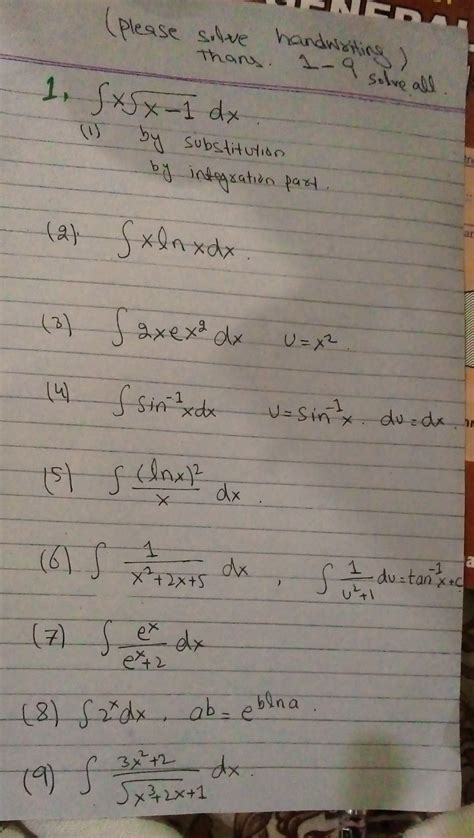 GENERAL
(please solve handwriting)
Thans. 1-9 solve all.
1. ∫x√x-1 dx.
(1) by substitution
by integration part.
(2). ∫xlnxdx.
(3) ∫2xex² dx U=x².
(4) ∫sin⁻¹xdx U=sin⁻¹x. dv=dx.
(5) ∫(lnx)²/x dx.
(6) ∫ 1/x²+2x+5 dx , ∫ 1/U²+1 du=tan⁻¹x+c
(7) ∫ eˣ/eˣ+2 dx
(8) ∫2ˣdx, ab=e^blna.
(9) ∫ 3x²+2/√x³+2x+1 dx.